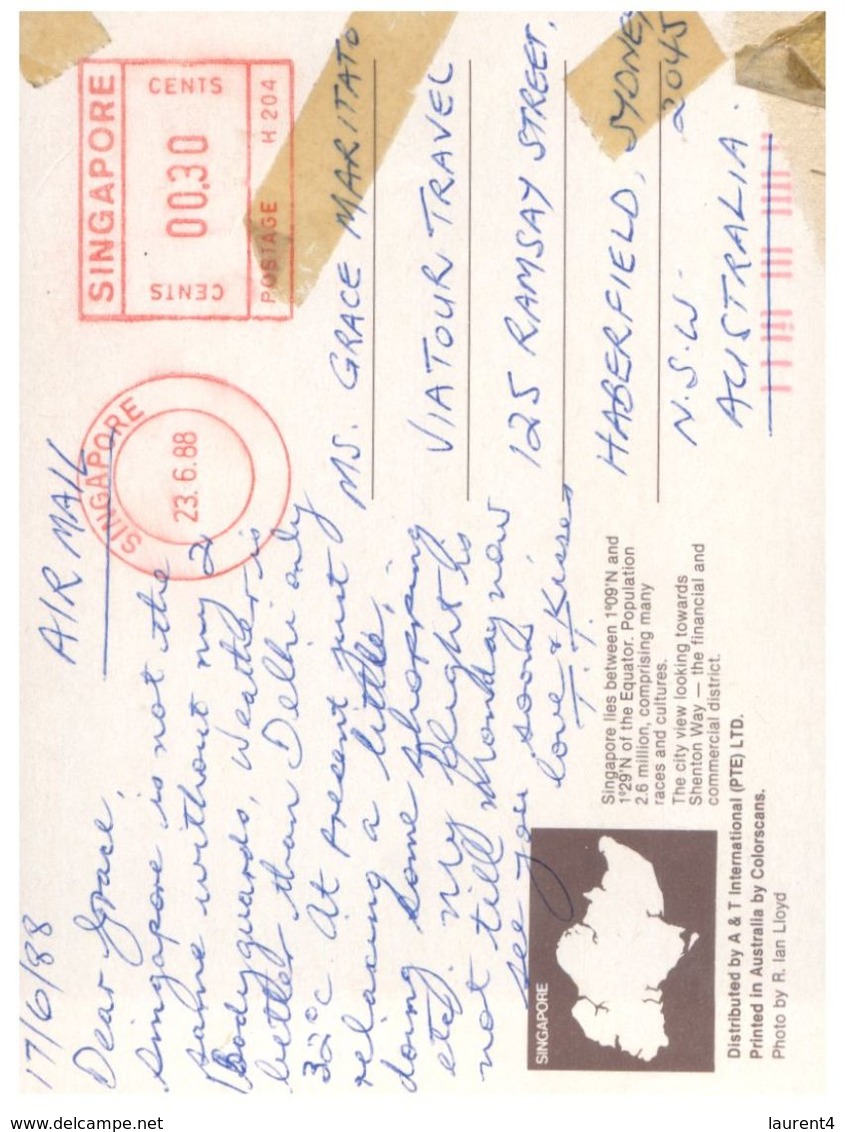 17/6/88
AIR MAIL
Dear Grace,
Singapore is not the
same without my 2
Bodyguards, Weather is
better than Delhi only
32°C At present just
relaxing a little,
doing some shopping
etc. My flight is
not till Monday now
see you soon
love & Kisses
T.T.
SINGAPORE
CENTS
00.30
CENTS
POSTAGE H 204
SINGAPORE
23.6.88
SINGAPORE
MS. GRACE MARITATO
VIATOUR TRAVEL
125 RAMSAY STREET,
HABERFIELD, SYDNEY
N.S.W. 2045
AUSTRALIA.
SINGAPORE
Singapore lies between 1°09'N and
1°29'N of the Equator. Population
2.6 million, comprising many
races and cultures.
The city view looking towards
Shenton Way — the financial and
commercial district.
Distributed by A & T International (PTE) LTD.
Printed in Australia by Colorscans.
Photo by R. Ian Lloyd
www.delcampe.net
laurent4